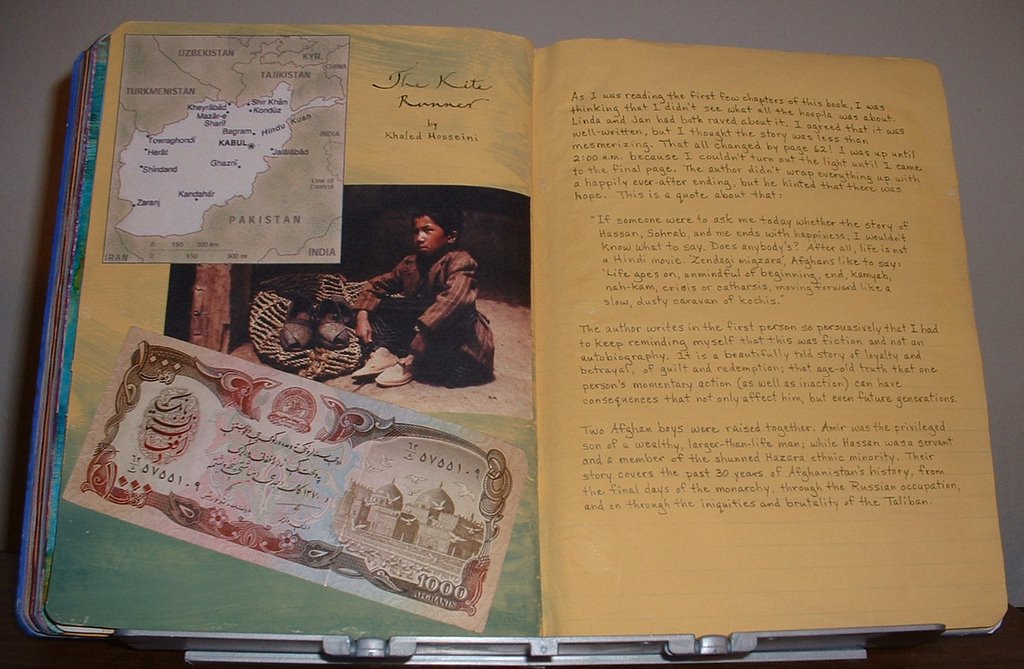 UZBEKISTAN
KYR.
CHINA
TAJIKISTAN
TURKMENISTAN
Kheyrābād
Shīr Khān
Mazār-e
Sharīf
Kondūz
Bagram
Hindu Kush
INDIA
Towraghondī
KABUL
Herāt
Jalālābād
Ghaznī
Shīndand
Line of
Control
Kandahār
Zaranj
PAKISTAN
0 150 300 km
0 150 300 mi
IRAN
INDIA
The Kite
Runner
by
Khaled Hosseini
۵۷۵۵۱۰۹
۵۷۵۵۱۰۹
1000
AFGHANIS
As I was reading the first few chapters of this book, I was
thinking that I didn't see what all the hoopla was about.
Linda and Jan had both raved about it. I agreed that it was
well-written, but I thought the story was less than
mesmerizing. That all changed by page 62! I was up until
2:00 a.m. because I couldn't turn out the light until I came
to the final page. The author didn't wrap everything up with
a happily ever-after ending, but he hinted that there was
hope. This is a quote about that:
"If someone were to ask me today whether the story of
Hassan, Sohrab, and me ends with happiness, I wouldn't
know what to say. Does anybody's? After all, life is not
a Hindi movie. 'Zendagi migzara,' Afghans like to say:
'Life goes on, unmindful of beginning, end, kamyab,
nah-kam, crisis or catharsis, moving forward like a
slow, dusty caravan of kochis."
The author writes in the first person so persuasively that I had
to keep reminding myself that this was fiction and not an
autobiography. It is a beautifully told story of loyalty and
betrayal, of guilt and redemption; that age-old truth that one
person's momentary action (as well as inaction) can have
consequences that not only affect him, but even future generations.
Two Afghan boys were raised together. Amir was the privileged
son of a wealthy, larger-than-life man; while Hassan was a servant
and a member of the shunned Hazara ethnic minority. Their
story covers the past 30 years of Afghanistan's history, from
the final days of the monarchy, through the Russian occupation,
and on through the iniquities and brutality of the Taliban.